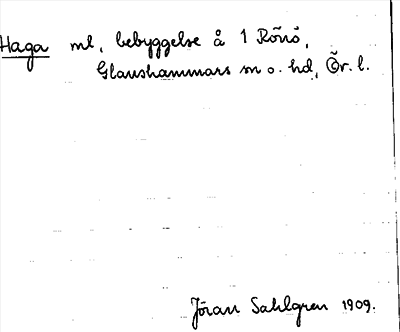 Haga ml, bebyggelse å 1 Rönö,
Glanshammars sn o. hd, Ör. l.
Jöran Sahlgren 1909.